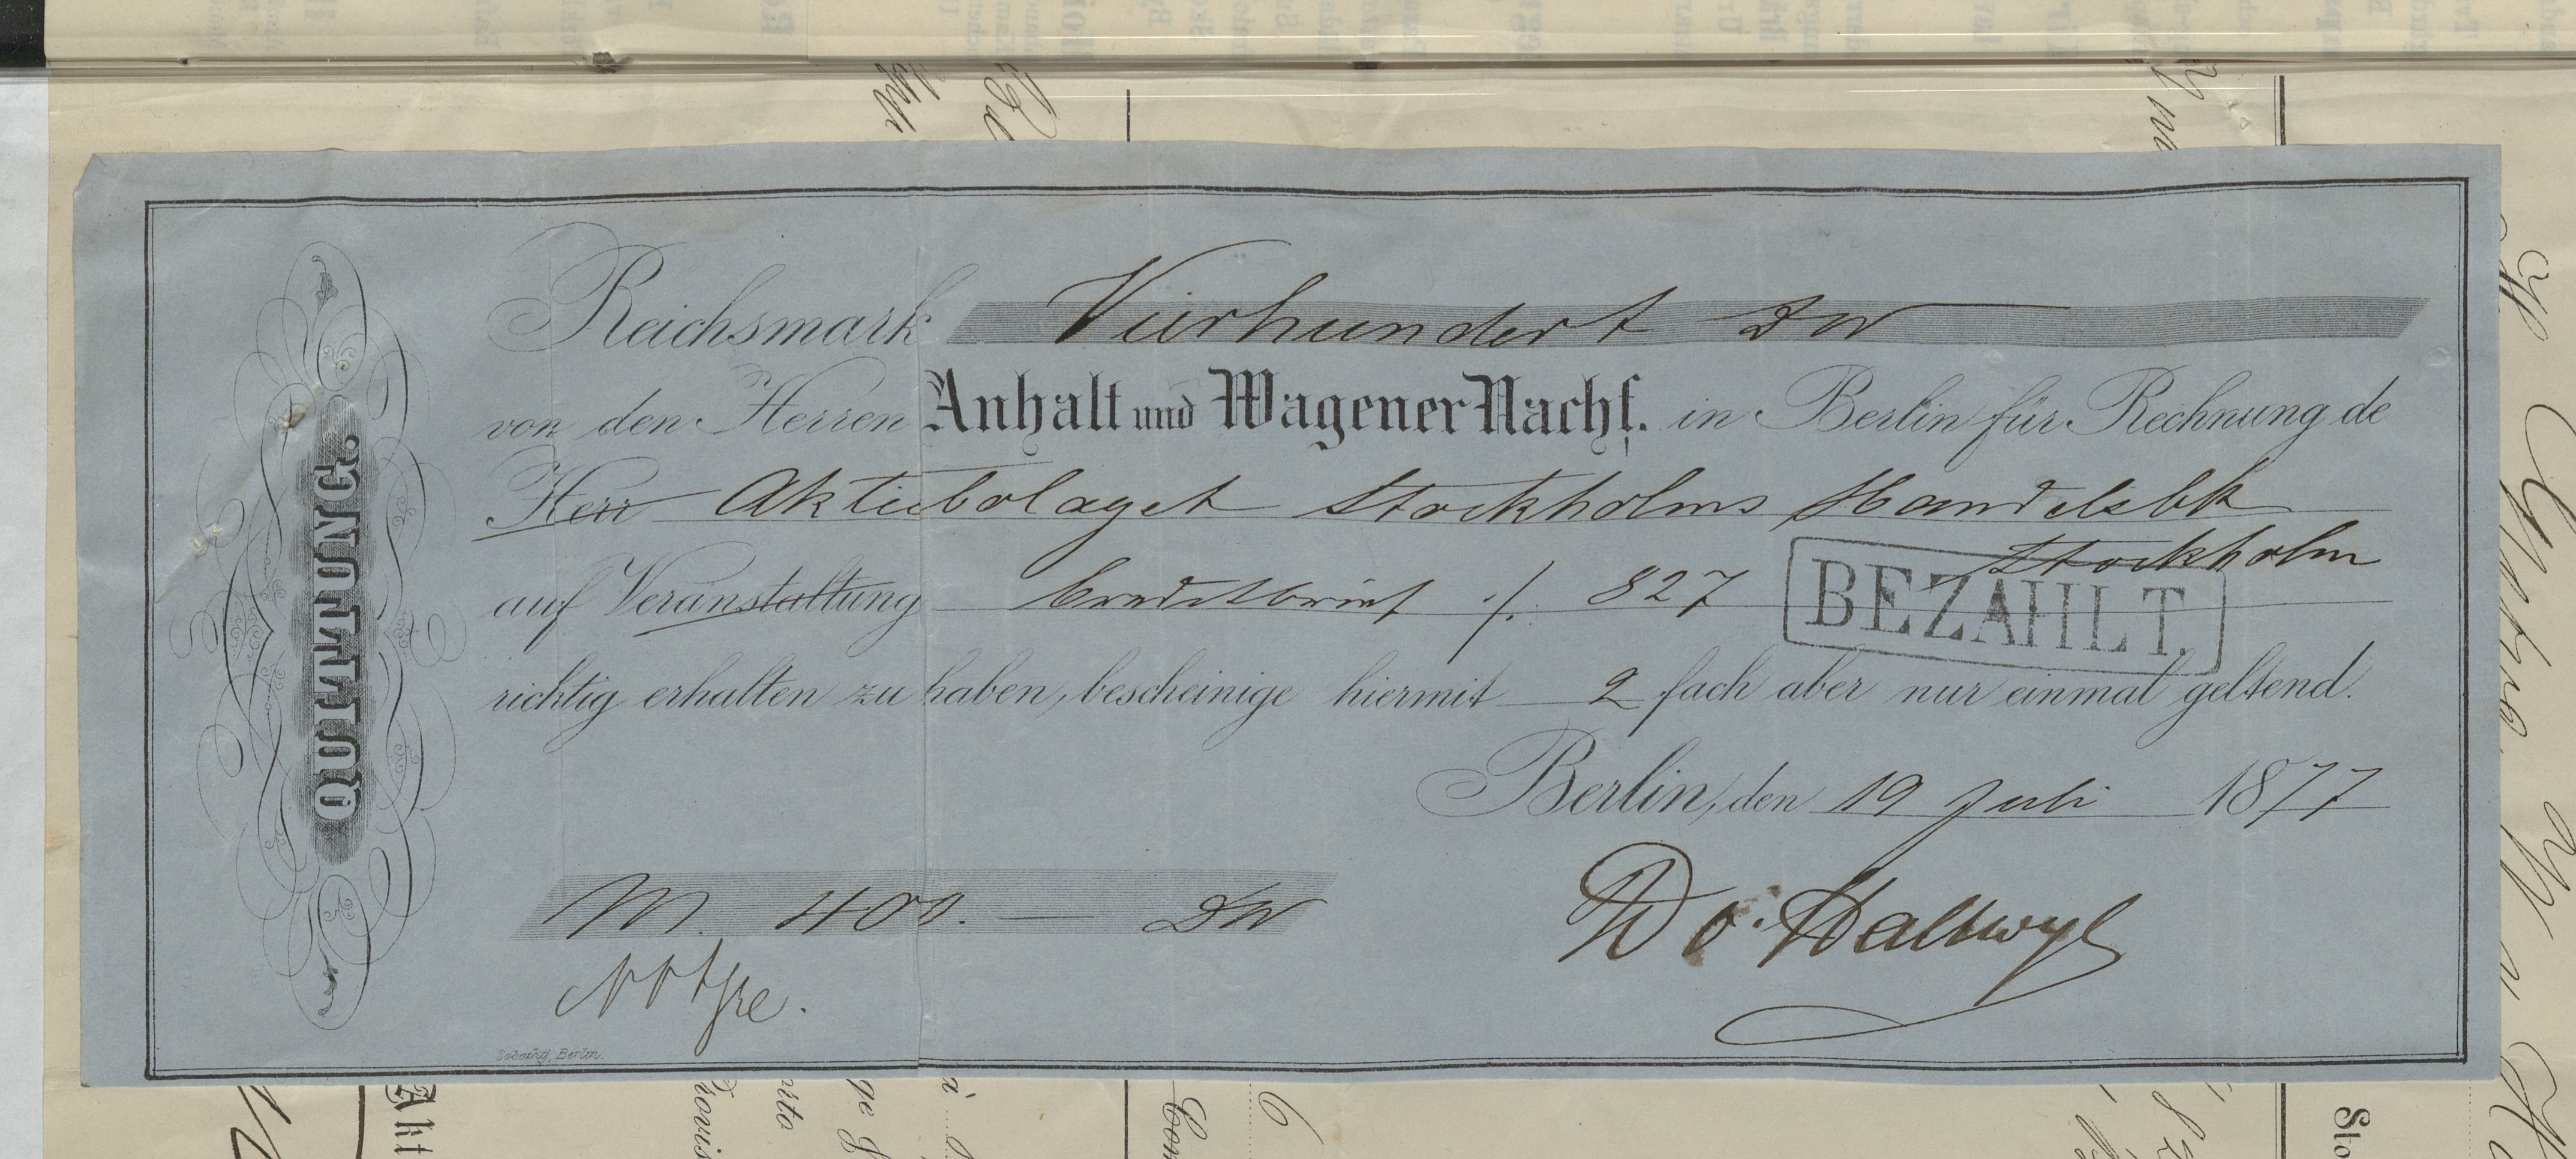 QUITTUNG.
Reichsmark Vierhundert DW
von den Herren Anhalt und Wagener Nachf. in Berlin für Rechnung de
Herr Aktiebolaget Stockholms Handelsbk
Stockholm
auf Veranstaltung Creditbrief ./. 827
BEZAHLT.
richtig erhalten zu haben, bescheinige hiermit 2 fach aber nur einmal geltend.
Berlin, den 19 Juli 1877
M. 400. — DW
W v. Hallwyl
Berlin.
Akt
Provis
orto
ge
à
Con
6
Sto